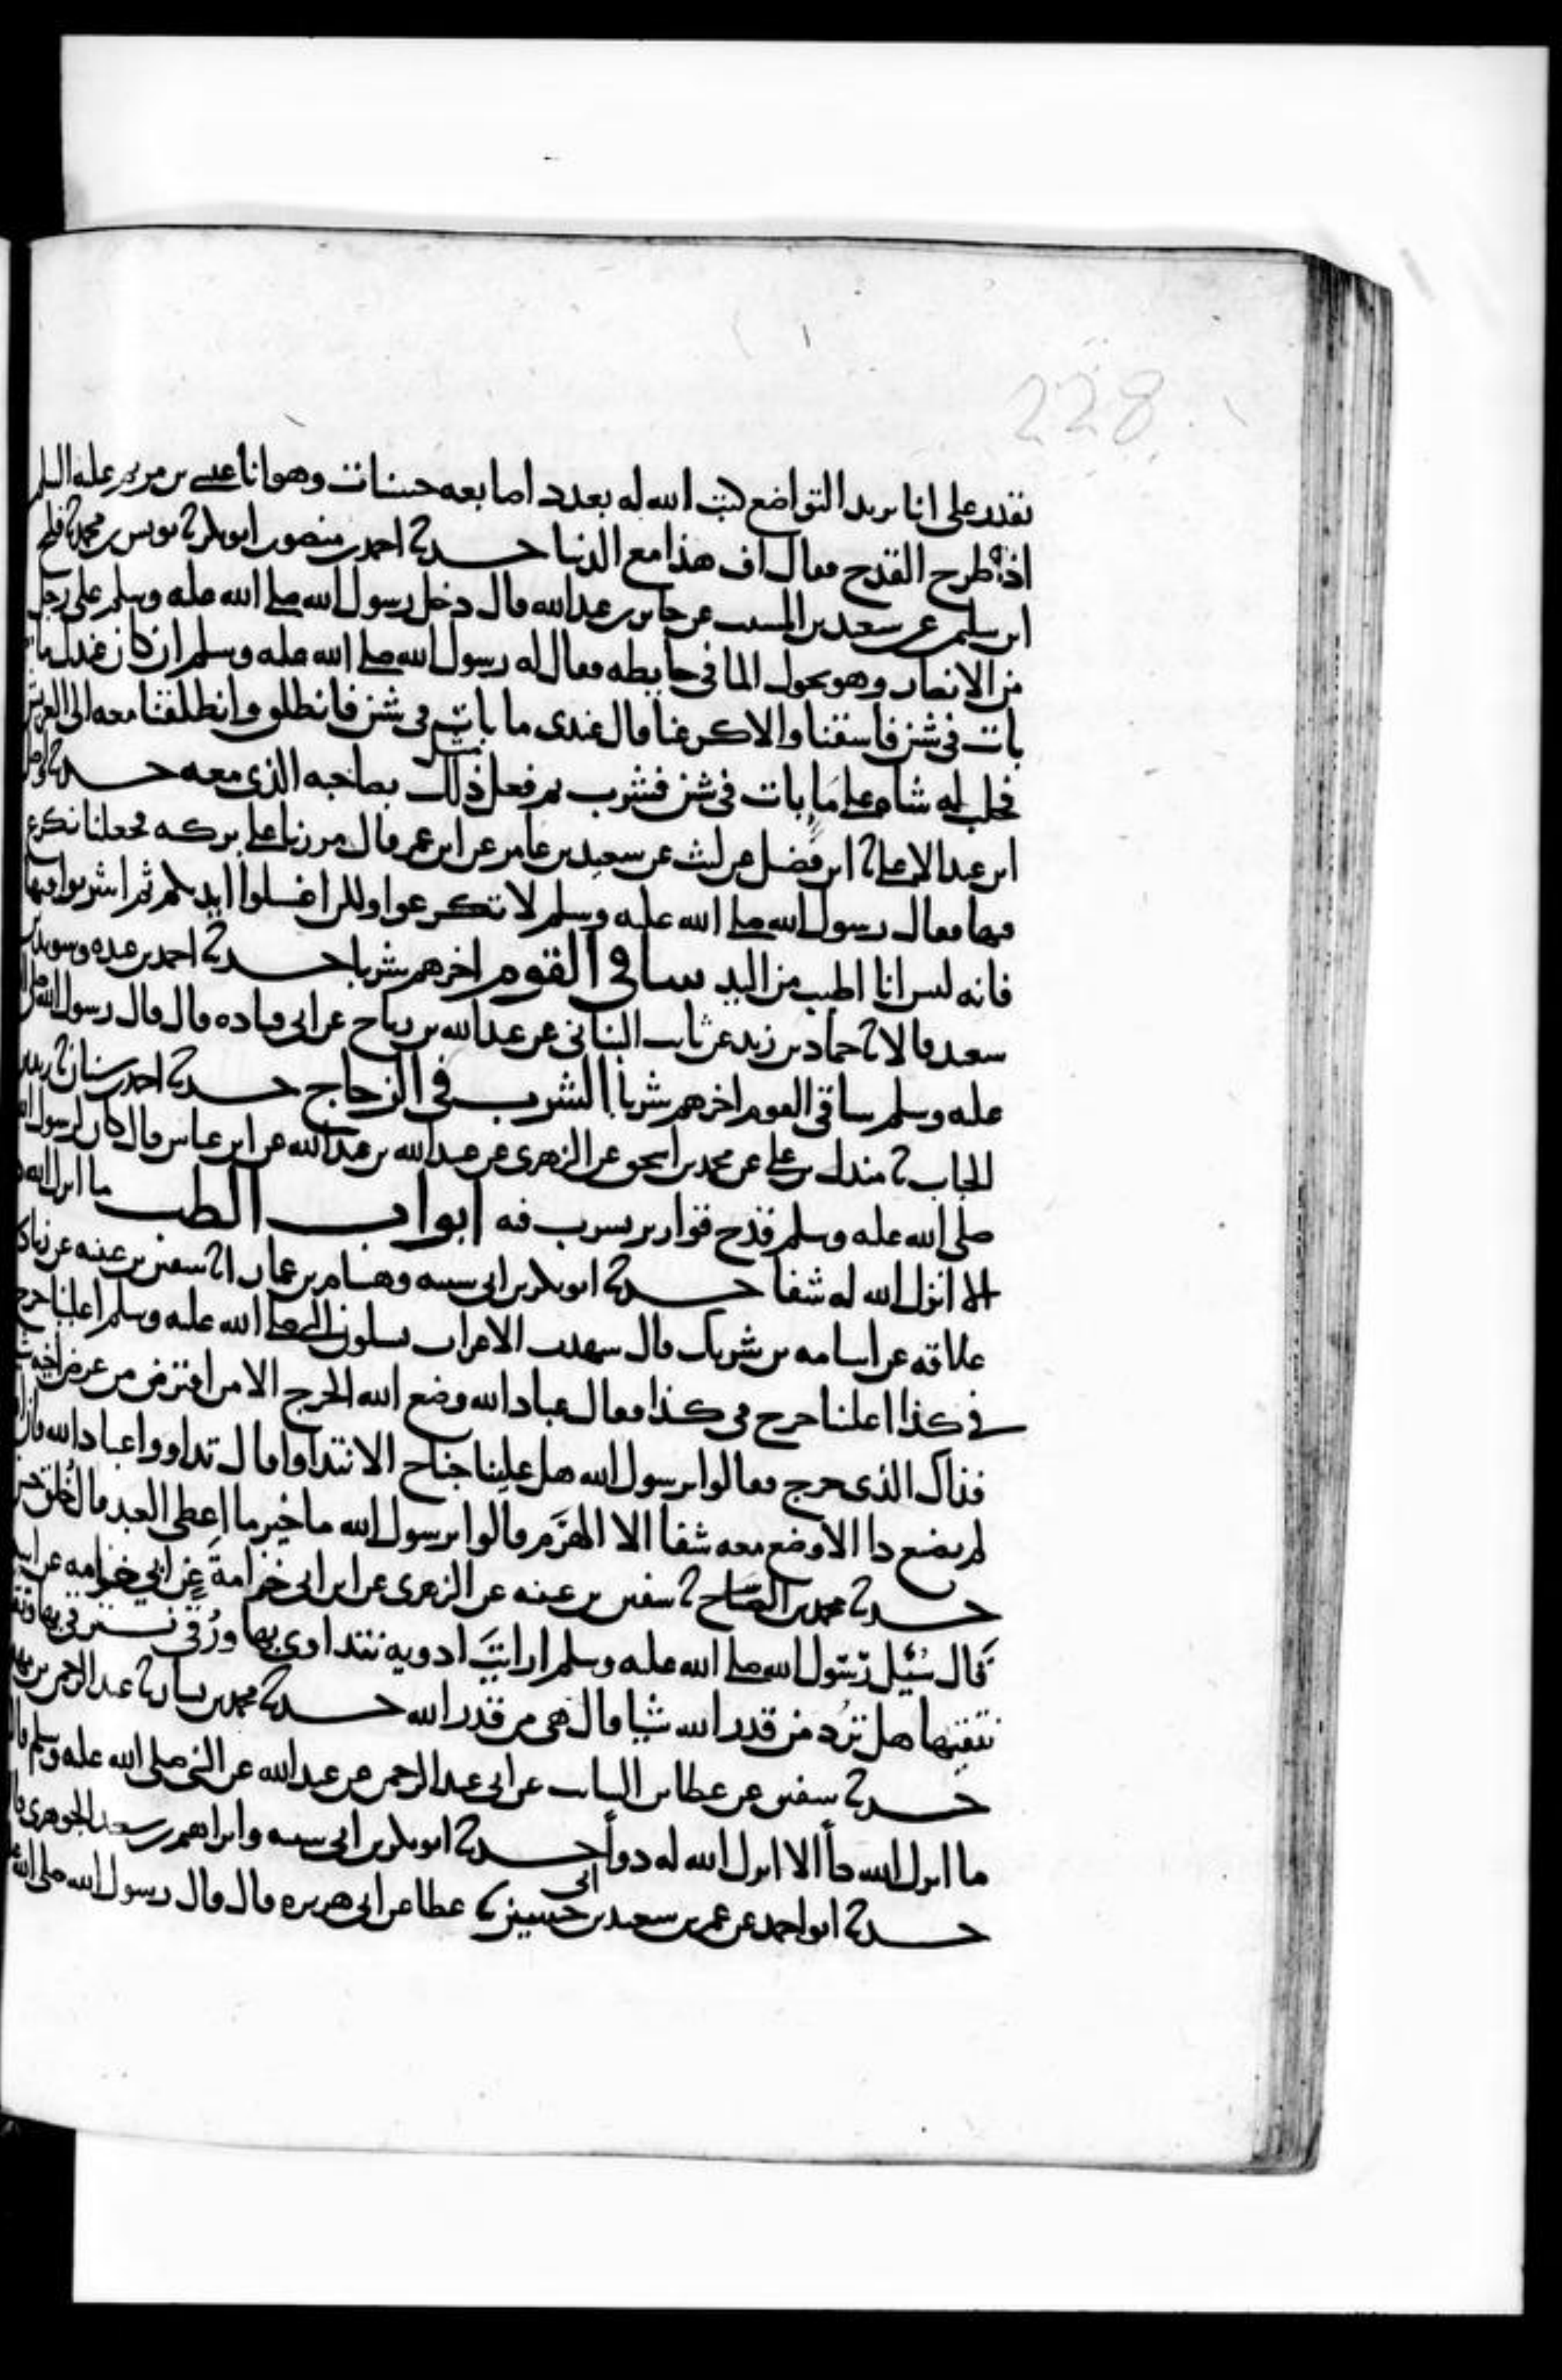 228
نقدر على انا يريد التواضع كتب الله له بعدد اصابعه حسنات وهو انا عيسى بن مريم عليه السلم
اذ طرح القدح فقال اف هذا مع الدنيا حدثنا احمد بن منصور ابو بكر ثنا يونس بن محمد ثنا فليح
ابن سليم عن سعيد بن المسيب عن جابر بن عبد الله قال دخل رسول الله صلى الله عليه وسلم على رجل
من الانصار وهو يحول الما في حايطه فقال له رسول الله صلى الله عليه وسلم ان كان عندك ما
بات في شن فاسقنا والا كرعنا قال عندي ما بات في شن فانطلق وانطلقنا معه الى العريش
فحلب له شاه على ما بات في شن فشرب ثم فعل مثل ذلك بصاحبه الذي معه حدثنا واصل
ابن عبد الاعلى ثنا ابن فضيل عن ليث عن سعيد بن عامر عن ابن عمر قال مررنا على بركه فجعلنا نكرع
فيها فقال رسول الله صلى الله عليه وسلم لا تكرعوا ولكن اغسلوا ايديكم ثم اشربوا فيها
فانه ليس انا اطيب من اليد ساقي القوم اخرهم شربا حدثنا احمد بن عبده وسويد بن
سعيد قالا ثنا حماد بن زيد عن ثابت البناني عن عبد الله بن رباح عن ابي قتاده قال قال رسول الله صلى الله
عليه وسلم ساقي القوم اخرهم شربا الشرب في الزجاج حدثنا احمد بن سنان ثنا زيد بن
الحباب ثنا مندل بن علي عن محمد بن اسحق عن الزهري عن عبيد الله بن عبد الله عن ابن عباس قال كان لرسول الله
صلى الله عليه وسلم قدح قوارير يشرب فيه ابواب الطب ما انزل الله دا
الا انزل الله له شفا حدثنا ابو بكر بن ابي شيبه وهشام بن عمار قالا ثنا سفين بن عيينه عن زياد بن
علاقه عن اسامه بن شريك قال شهدت الاعراب يسلون النبي صلى الله عليه وسلم اعلينا حرج
في كذا اعلينا حرج في كذا فقال عباد الله وضع الله الحرج الا من اقترض من عرض اخيه شيا
فذاك الذي حرج فقالوا يرسول الله هل علينا جناح الا نتداوا قال تداووا عباد الله فان الله
لم يضع دا الا وضع معه شفا الا الهرم قالوا يرسول الله ما خير ما اعطي العبد قال خلق حسن
حدثنا محمد بن الصباح ثنا سفين بن عيينه عن الزهري عن ابن ابي خزامة عن ابي خزامه
قال سئيل رسول الله صلى الله عليه وسلم ارايت ادويه نتداوى بها ورقى نسترقي بها وتقى
نتقيها هل ترد من قدر الله شيا قال هي من قدر الله حدثنا محمد بن بشار ثنا عبد الرحمن بن مهدي
حدثنا سفين عن عطا بن السايب عن ابي عبد الرحمن عن عبد الله عن النبي صلى الله عليه وسلم قال
ما انزل الله دأ الا انزل الله له دوأ حدثنا ابو بكر بن ابي شيبه وابراهيم بن سعيد الجوهري قالا
حدثنا ابو احمد عن عمر بن سعيد بن ابي حسين ثنا عطا عن ابي هريره قال قال رسول الله صلى الله